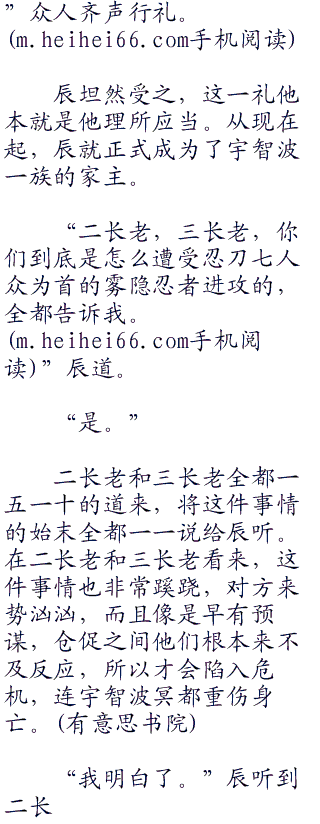 ”众人齐声行礼。
(m.heihei66.com手机阅读)
辰坦然受之，这一礼他
本就是他理所应当。从现在
起，辰就正式成为了宇智波
一族的家主。
“二长老，三长老，你
们到底是怎么遭受忍刀七人
众为首的雾隐忍者进攻的，
全都告诉我。
(m.heihei66.com手机阅
读)”辰道。
“是。”
二长老和三长老全都一
五一十的道来，将这件事情
的始末全都一一说给辰听。
在二长老和三长老看来，这
件事情也非常蹊跷，对方来
势汹汹，而且像是早有预
谋，仓促之间他们根本来不
及反应，所以才会陷入危
机，连宇智波冥都重伤身
亡。(有意思书院)
“我明白了。”辰听到
二长